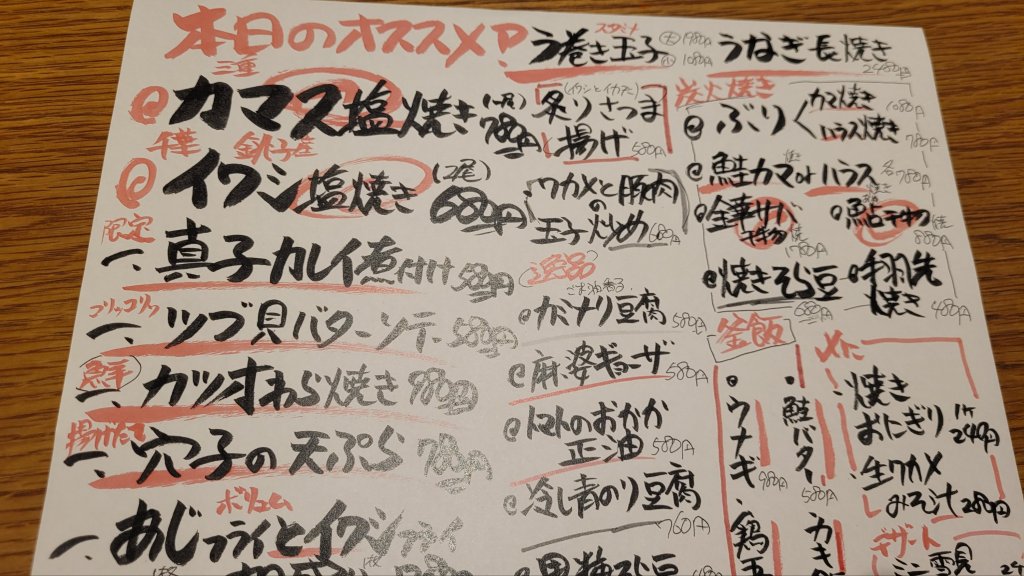 本日のオススメ!
三重
カマス塩焼き (1尾) 780円
千葉 銚子産
イワシ塩焼き (2尾) 680円
限定
一、真子カレイ煮付け 580円
コリッコリッ
一、ツブ貝バターソテー 580円
一、カツオわら焼き 980円
揚げたて
一、穴子の天ぷら 780円
ボリューム
一、あじフライとイワシフライ
う巻き玉子 大 1980円
小 1080円
(イワシとイカアミ)
炙りさつま
揚げ 580円
ワカメと豚肉
の
玉子炒め 680円
逸品
ごま油香る
カミナリ豆腐 580円
麻婆ギョーザ 580円
トマトのおかか
正油 580円
冷し青のり豆腐
760円
うなぎ長焼き
2480円
炭火焼き
ぶり カマ焼き 1080円
ハラス焼き 780円
鮭カマorハラス 各780円
金華サバ
干物
焼そら豆 680円
手羽先
焼き 480円
釜飯
・ウナギ 980円
・鮭バター 580円
・鶏五
カキ
〆に
焼き
おにぎり 1ケ
240円
生ワカメ
みそ汁 280円
デザート
ミニ雪見